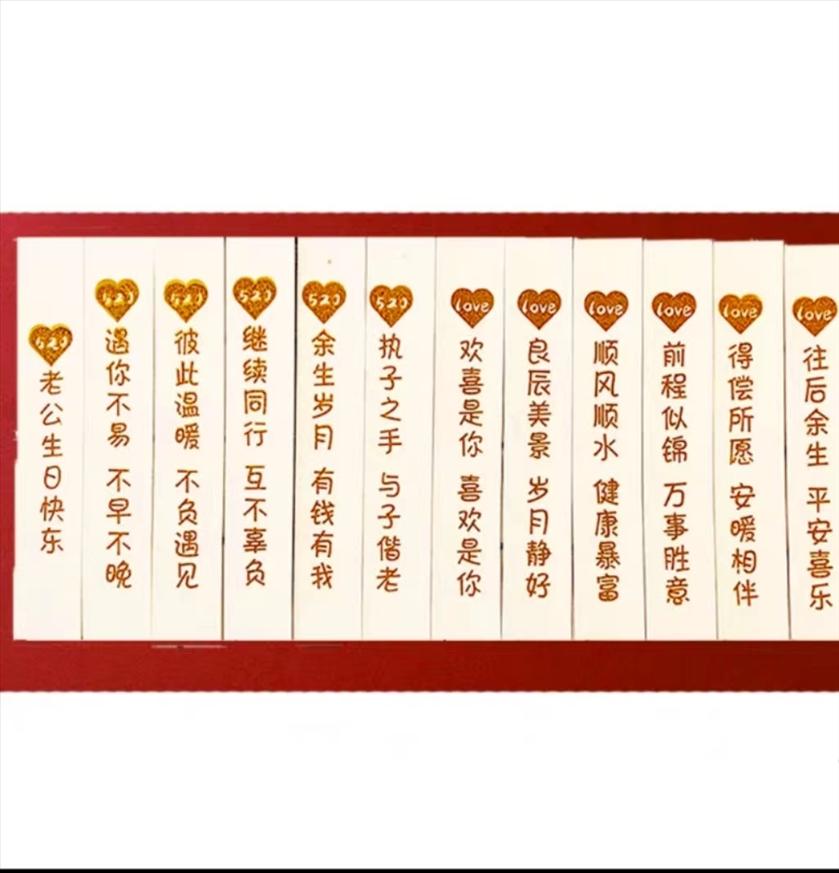 520
老公生日快东
520
遇你不易 不早不晚
520
彼此温暖 不负遇见
520
继续同行 互不辜负
520
余生岁月 有钱有我
520
执子之手 与子偕老
love
欢喜是你 喜欢是你
love
良辰美景 岁月静好
love
顺风顺水 健康暴富
love
前程似锦 万事胜意
love
得偿所愿 安暖相伴
love
往后余生 平安喜乐